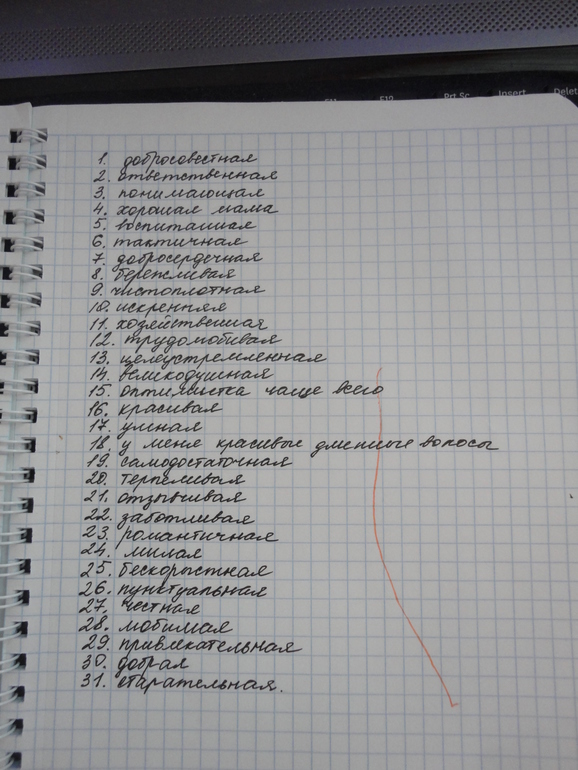 F12
Prt Sc
Insert
Delet
1. добросовестная
2. ответственная
3. понимающая
4. хорошая мама
5. воспитанная
6. тактичная
7. добросердечная
8. бережливая
9. чистоплотная
10. искренняя
11. хозяйственная
12. трудолюбивая
13. целеустремленная
14. великодушная
15. оптимистка чаще всего
16. красивая
17. умная
18. у меня красивые длинные волосы
19. самодостаточная
20. терпеливая
21. отзывчивая
22. заботливая
23. романтичная
24. милая
25. бескорыстная
26. пунктуальная
27. честная
28. любимая
29. привлекательная
30. добрая
31. старательная.